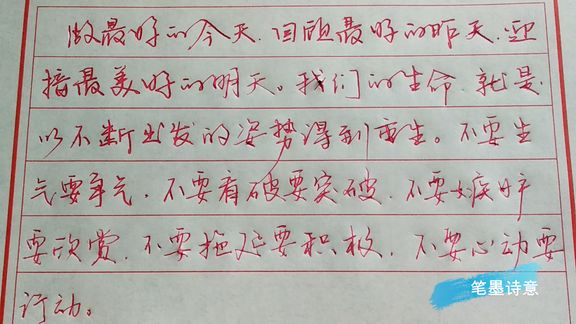 做最好的今天,回顾最好的昨天,迎
接最美好的明天。我们的生命,就是
以不断出发的姿势得到重生。不要生
气要争气,不要看破要突破,不要嫉妒
要欣赏,不要拖延要积极,不要心动要
行动。
笔墨诗意